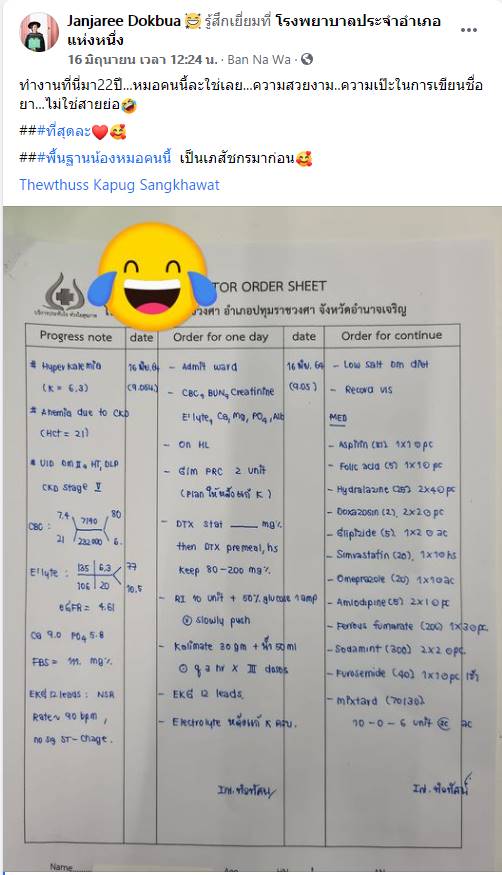 Janjaree Dokbua 😹 รู้สึกเยี่ยมที่ โรงพยาบาลประจำอำเภอ
แห่งหนึ่ง
16 มิถุนายน เวลา 12:24 น. · Ban Na Wa ·
ทำงานที่นี่มา22ปี...หมอคนนี้ละใช่เลย...ความสวยงาม..ความเป๊ะในการเขียนชื่อ
ยา...ไม่ใช่สายย่อ🤣
###ที่สุดละ❤️🥰
###พื้นฐานน้องหมอคนนี้ เป็นเภสัชกรมาก่อน🥰
Thewthuss Kapug Sangkhawat
TOR ORDER SHEET
วงศา อำเภอปทุมราชวงศา จังหวัดอำนาจเจริญ
Progress note
date
Order for one day
date
Order for continue
# Hyperkalemia
(K = 6.3)
# Anemia due to CKD
(Hct = 21)
# U/D DM II, HT, DLP
CKD stage V
CBC : 7.4 7190 80
21 232000 6.
E'lyte : 135 6.3 77
106 20 10.5
eGFR = 4.61
Ca 9.0 PO4 5.8
FBS = 111 mg%
EKG 12 leads : NSR
Rate ~ 90 bpm,
no sg ST-chage.
16 มิย. 64
- Admit ward
- CBC, BUN, Creatinine
E'lyte, Ca, Mg, PO4, Alb
- on HL
- G/M PRC 2 unit
(Plan ให้หลังแก้ K)
- DTX stat ____ mg%
then DTX premeal, hs
keep 80-200 mg%
- RI 10 unit + 50% glucose 1 amp
Ⓥ slowly push
- Kalimate 30 gm + น้ำ 50 ml
q 2 hr x III doses
- EKG 12 leads.
- Electrolyte หลังแก้ K ครบ.
16 มิย. 64
(9.05)
- Low salt DM diet
- Record V/S
MED
- Aspirin (81) 1x1 pc
- Folic acid (5) 1x1 pc
- Hydralazine (25) 2x4 pc
- Doxazosin (2) 2x2 pc
- Glipizide (5) 1x2 ac
- Simvastatin (20) 1x1 hs
- Omeprazole (20) 1x1 ac
- Amlodipine (5) 2x1 pc
- Ferrous fumarate (200) 1x3 pc
- Sodamint (300) 2x2 pc
- Furosemide (40) 1x1 pc เช้า
- Mixtard (70/30)
10-0-6 unit ac
Name